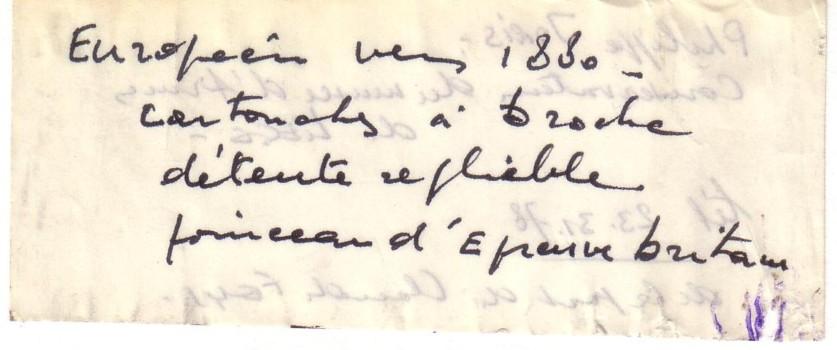 Européen vers 1880 –
cartouches à broche
détente repliable
poinceau d'Epreuve britann